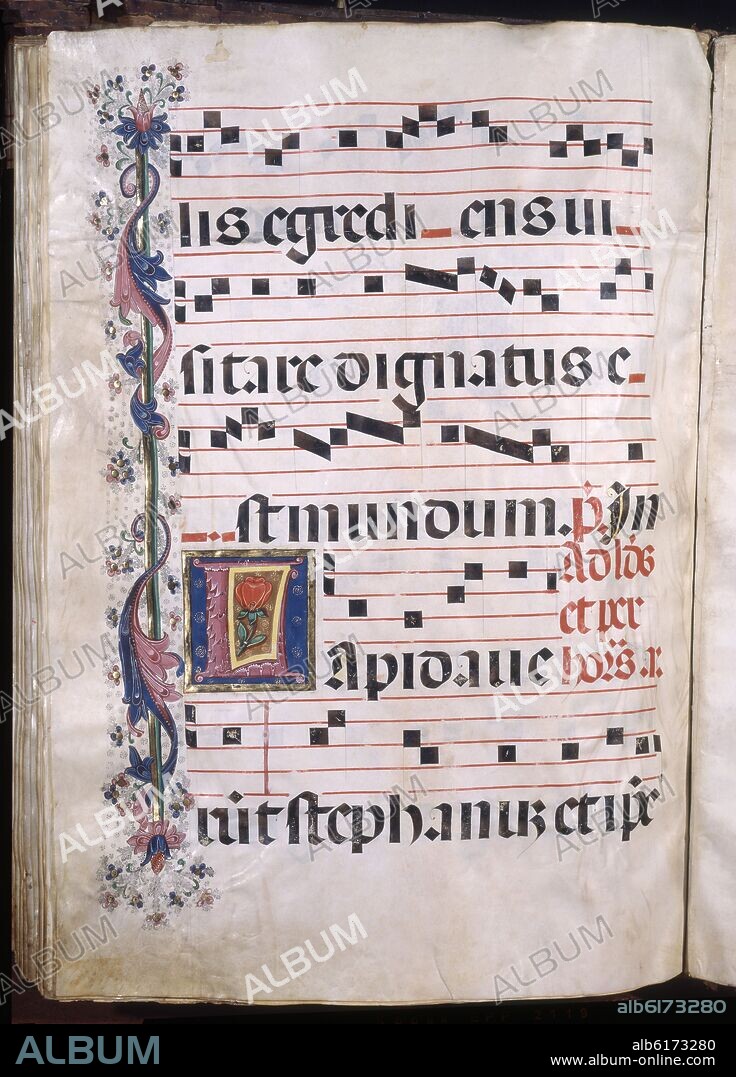 lis egredi ens ui
sitare dignatus e
st mundum. p̃. In
Ad lds
et per
Lapidaue horas ã.
rũt stephanuz et ip̃e
ALBUM
alb6173280
alb6173280
www.album-online.com